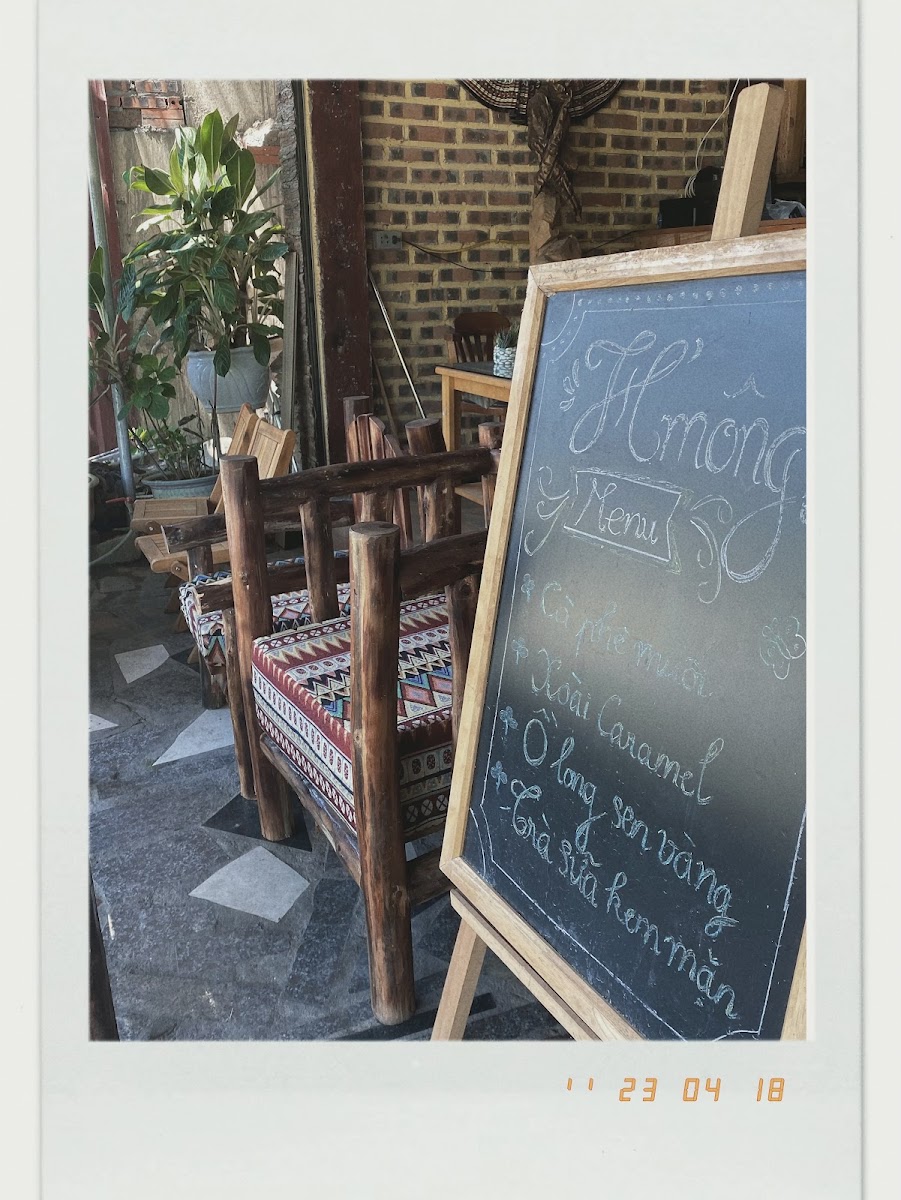 H'mông
Menu
Cà phê muối
Xoài Caramel
Ô long sen vàng
Trà sữa kem mặn
'' 23 04 18